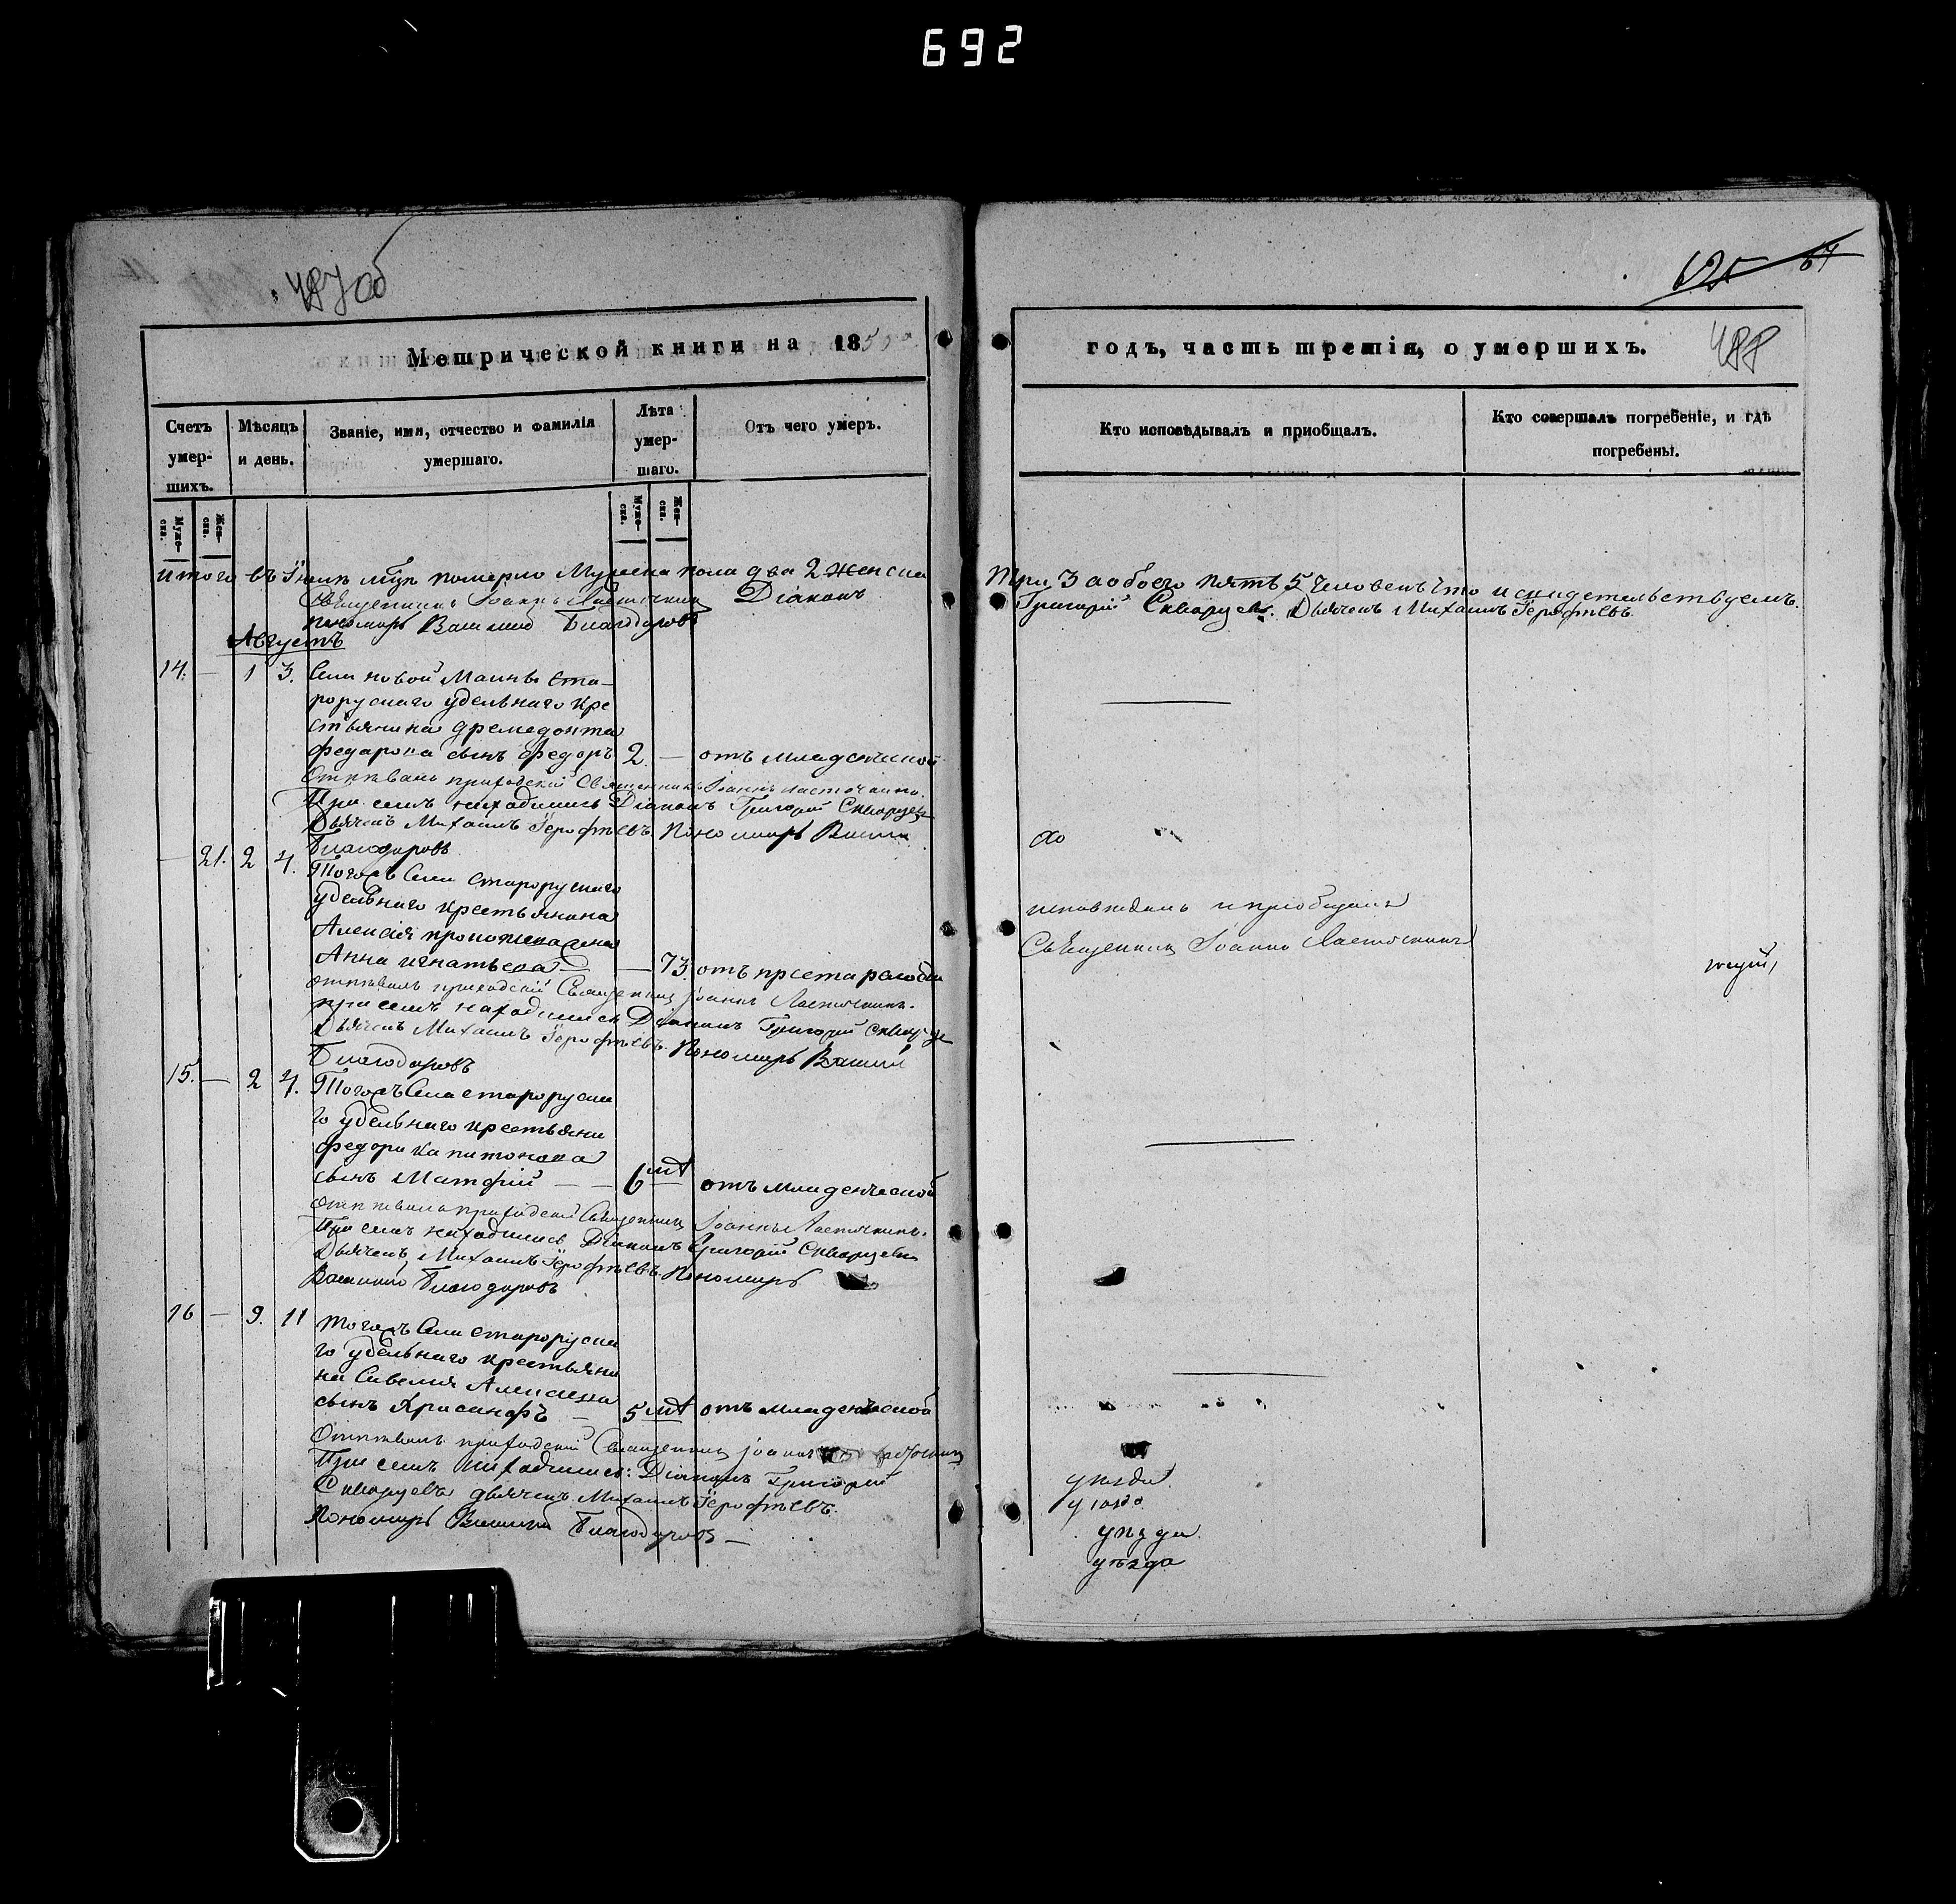 692
487 об
Метрической книги на 1850
Счетъ умер-шихъ.
Мѣсяцъ и день.
Званіе, имя, отчество и фамилія умершаго.
Лѣта умер-шаго.
Отъ чего умеръ.
Муже-ска.
Жен-ска.
Муже-ска.
Жен-ска.
Итого въ Іюлѣ м-цѣ померло Мужска пола два 2 Женска
Священникъ Іоаннъ Ласточкинъ Діаконъ
пономарь Василий Благодаровъ
Августъ
14. — 1 3. Села новой Маины ста-
рорускаго удельнаго кре
стьянина
федорова сынъ федоръ 2. — отъ младенческой
Отпевалъ приходскій Священникъ Іоаннъ Ласточкинъ.
При семъ находились Діаконъ Григорій Скворцевъ
Дьячекъ Михаилъ Ѓерофѣевъ. Пономарь Васили
Благодаровъ
— 21. 2 4. Тогожъ Села старорускаго
удельнаго крестьянина
Алексѣя жена
Анна игнатьева — 73 отъ престарелости
отпѣвалъ приходскій Священникъ Іоаннъ Ласточкинъ.
при семъ находились Діаконъ Григорій Скворце
Дьячекъ Михаилъ Ѓерофѣевъ. Пономарь Василий
Благодаровъ
15. — 2 4. Тогожъ Села старорускa
го удельнаго крестьяни
федора капитонова
сынъ Матфій — — 6 отъ младенческой
отпѣвалъ приходскій Священникъ Іоаннъ Ласточкинъ.
При семъ находились Діаконъ Григорій Скворцевъ
Дьячекъ Михаилъ Ѓерофѣевъ. Пономарь
Василий Благодаровъ
16 — 9. 11 тогожъ Села старорускa
го удельнаго крестьяни
на Савелия Алексеева
сынъ Хрисанфъ — 5 отъ младенческой
Отпѣвалъ приходскій Священникъ Іоаннъ
При семъ находились: Діаконъ Григорій
Скворцевъ дьячекъ Михаилъ Ѓерофѣевъ.
Пономарь Василий Благодаровъ —
625 64
488
годъ, часть третія, о умершихъ.
Кто исповѣдывалъ и приобщалъ.
Кто совершалъ погребеніе, и гдѣ погребены.
Три 3 а обоего пять 5 человекъ что и свидетельствуемъ.
Григорій Скворцев. Дьячекъ Михаилъ Ѓерофѣевъ.
исповедалъ и приобщалъ
Священникъ Іоаннъ Ласточкинъ
уезда
уезда
уѣзда